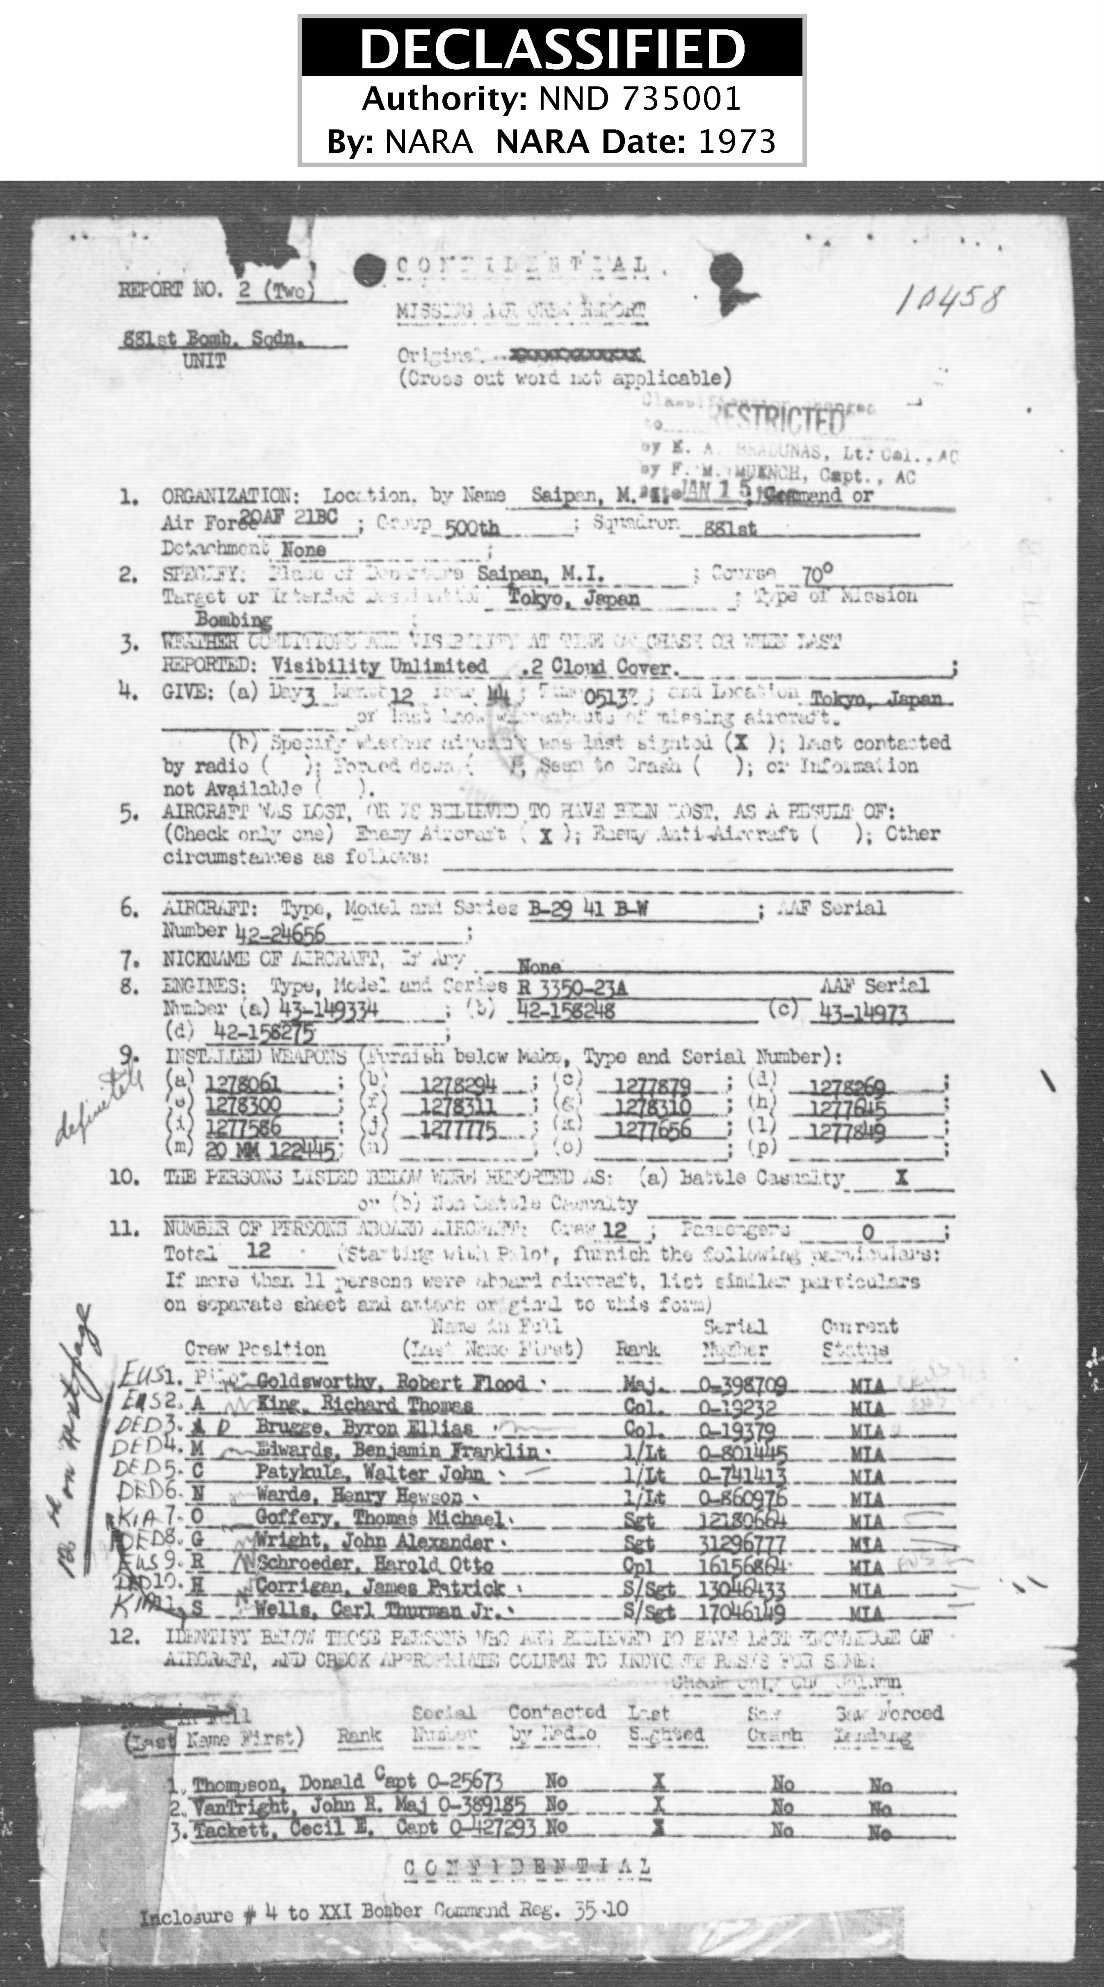 DECLASSIFIED
Authority: NND 735001
By: NARA NARA Date: 1973
CONFIDENTIAL
REPORT NO. 2 (Two)
10458
MISSING AIR CREW REPORT
881st Bomb. Sqdn.
UNIT
Original xxxxxxxxxxxx
(Cross out word not applicable)
Classification changed
to RESTRICTED
by E. A. BRADUNAS, Lt. Col., AC
by F. M. MUENCH, Capt., AC
JAN 15
1. ORGANIZATION: Location, by Name Saipan, M. I. ; Command or
Air Force 20AF 21BC ; Group 500th ; Squadron 881st
Detachment None ;
2. SPECIFY: Place of Departure Saipan, M.I. ; Course 70°
Target or Intended Destination Tokyo, Japan ; Type of Mission
Bombing ;
3. WEATHER CONDITIONS AND VISIBILITY AT TIME OF CRASH OR WHEN LAST
REPORTED: Visibility Unlimited .2 Cloud Cover. ;
4. GIVE: (a) Day 3 Month 12 Year 44; Time 0513Z; and Location Tokyo, Japan
or last know whereabouts of missing aircraft.
(b) Specify whether aircraft was last sighted (X ); last contacted
by radio ( ); Forced down ( ); Seen to Crash ( ); or Information
not Available ( ).
5. AIRCRAFT WAS LOST, OR IS BELIEVED TO HAVE BEEN LOST, AS A RESULT OF:
(Check only one) Enemy Aircraft ( X ); Enemy Anti-Aircraft ( ); Other
circumstances as follows:
6. AIRCRAFT: Type, Model and Series B-29 41 B-W ; AAF Serial
Number 42-24656 ;
7. NICKNAME OF AIRCRAFT, If Any None
8. ENGINES: Type, Model and Series R 3350-23A AAF Serial
Number (a) 43-149334 ; (b) 42-158248 (c) 43-14973
(d) 42-158275 ;
9. INSTALLED WEAPONS (Furnish below Make, Type and Serial Number):
(a) 1278061 ; (b) 1278294 ; (c) 1277879 ; (d) 1278269 ;
(e) 1278300 ; (f) 1278311 ; (g) 1278310 ; (h) 1277645 ;
definitely
(i) 1277586 ; (j) 1277775 ; (k) 1277656 ; (l) 1277849 ;
(m) 20 MM 122445; (n) ; (o) ; (p) ;
10. THE PERSONS LISTED BELOW WERE REPORTED AS: (a) Battle Casualty X
or (b) Non Battle Casualty
11. NUMBER OF PERSONS ABOARD AIRCRAFT: Crew 12 ; Passengers 0 ;
Total 12 (Starting with Pilot, furnich the following particulars:
If more than 11 persons were aboard aircraft, list similar particulars
on separate sheet and attach original to this form)
Name in Full Serial Current
Crew Position (Last Name First) Rank Number Status
12th on next page
EUS 1. Pilot Goldsworthy, Robert Flood Maj. 0-398709 MIA
EUS 2. A King, Richard Thomas Col. 0-19232 MIA
DED 3. A D Brugge, Byron Ellias Col. 0-19379 MIA
DED 4. M Edwards, Benjamin Franklin 1/Lt 0-801445 MIA
DED 5. C Patykula, Walter John 1/Lt 0-741413 MIA
DED 6. N Warde, Henry Hewson 1/Lt 0-860976 MIA
KIA 7. O Goffery, Thomas Michael Sgt 12180664 MIA
DED 8. G Wright, John Alexander Sgt 31296777 MIA
EUS 9. R Schroeder, Harold Otto Cpl 16156864 MIA
DED 10. H Corrigan, James Patrick S/Sgt 13046433 MIA
KIA 11. S Wells, Carl Thurman Jr. S/Sgt 17046149 MIA
12. IDENTIFY BELOW THOSE PERSONS WHO ARE BELIEVED TO HAVE LAST KNOWLEDGE OF
AIRCRAFT, AND CHECK APPROPRIATE COLUMN TO INDICATE BASIS FOR SAME:
Check only one Column
Name in Full Serial Contacted Last Saw Saw Forced
(Last Name First) Rank Number by Radio Sighted Crash Landing
1. Thompson, Donald Capt 0-25673 No X No No
2. VanTright, John R. Maj 0-389185 No X No No
3. Tackett, Cecil E. Capt 0-427293 No X No No
CONFIDENTIAL
Inclosure # 4 to XXI Bomber Command Reg. 35-10